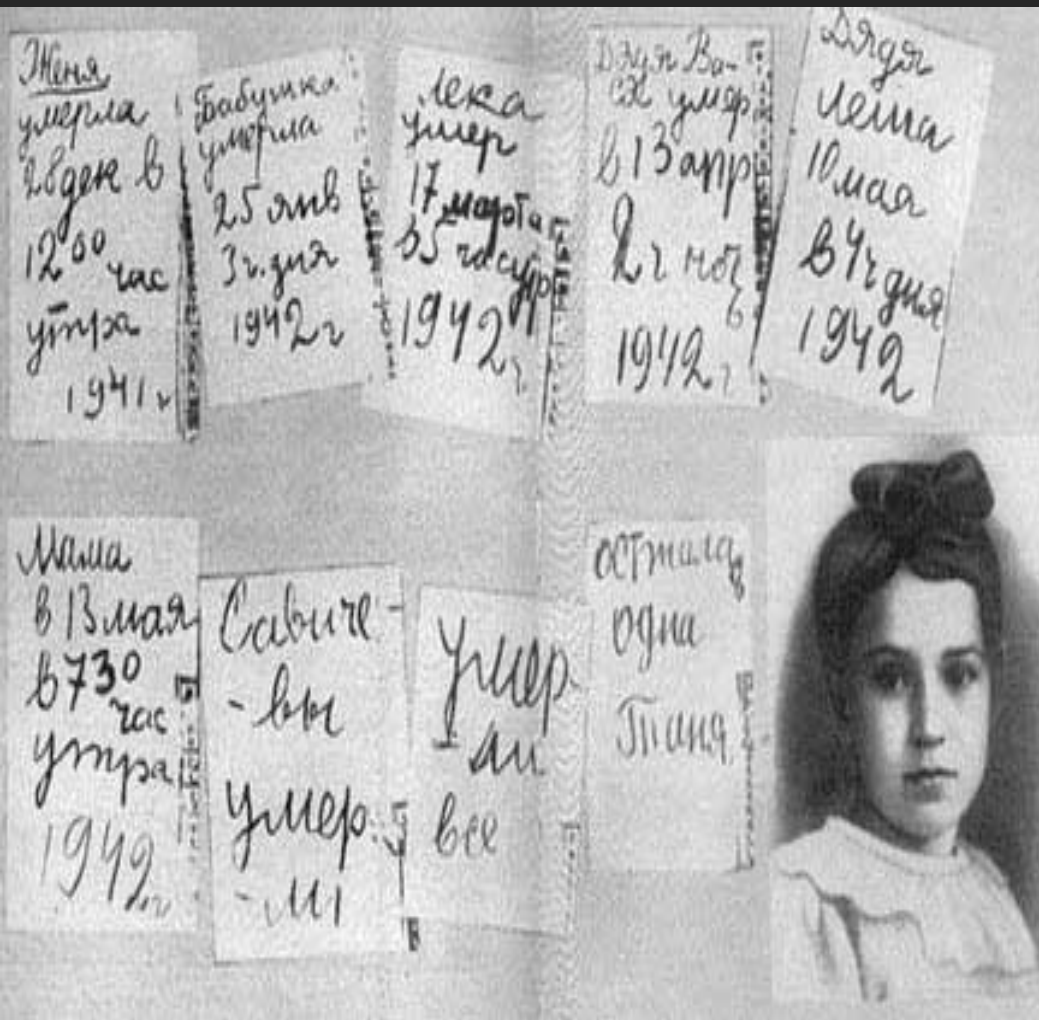 Женя
умерла
28 дек в
12⁰⁰
час
утра
1941 г
Бабушка
умерла
25 янв
3 ч. дня
1942 г
Лека
умер
17 марта
в 5 час утр
1942 г.
Дядя Ва-
ся умер
в 13 апр
2 ч ноч
ь
1942 г
Дядя
Леша
10 мая
в 4 ч дня
1942
Мама
в 13 мая
в 7 30
час
утра
1942 г
Савиче-
-вы
умер.
-ли
Умер
-ли
все
осталась
одна
Таня